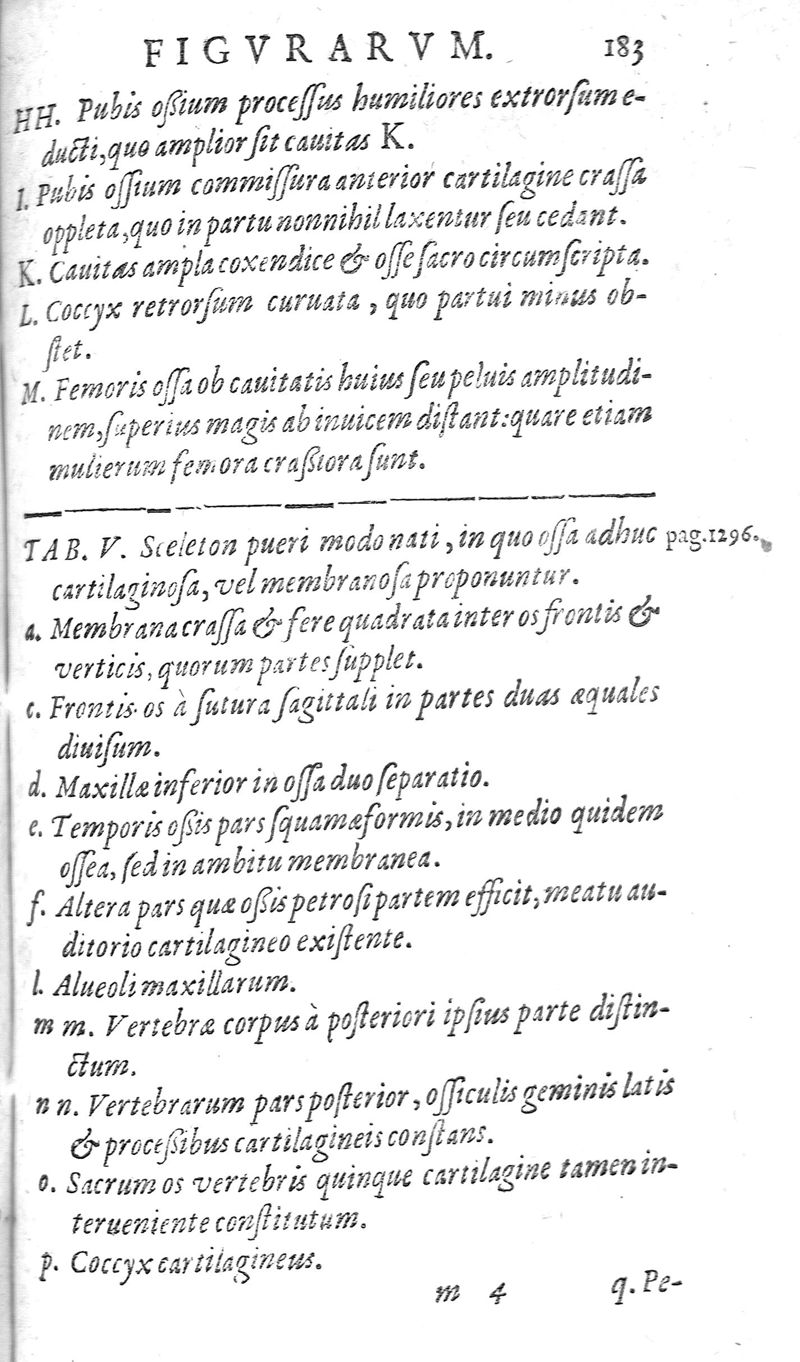 FIGVRARVM. 183
HH. Pubis oßium proceſſus humiliores extrorſum e-
ducti, quo amplior ſit cauitas K.
I. Pubis oſſium commiſſura anterior cartilagine craſſa
oppleta, quo in partu nonnihil laxentur ſeu cedant.
K. Cauitas ampla coxendice & oſſe ſacro circumſcripta.
L. Coccyx retrorſum curuata, quo partui minus ob-
ſtet.
M. Femoris oſſa ob cauitatis huius ſeu peluis amplitudi-
nem, ſuperius magis ab inuicem diſtant: quare etiam
mulierum femora craßiora ſunt.
TAB. V. Sceleton pueri modo nati, in quo oſſa adhuc pag. 1296.
cartilaginoſa, vel membranoſa proponuntur.
a. Membrana craſſa & fere quadrata inter os frontis &
verticis, quorum partes ſupplet.
c. Frontis os à ſutura ſagittali in partes duas æquales
diuiſum.
d. Maxillæ inferior in oſſa duo ſeparatio.
e. Temporis oßis pars ſquamæformis, in medio quidem
oſſea, ſed in ambitu membranea.
f. Altera pars quæ oßis petroſi partem efficit, meatu au-
ditorio cartilagineo exiſtente.
l. Alueoli maxillarum.
m m. Vertebræ corpus à poſteriori ipſius parte diſtin-
ctum.
n n. Vertebrarum pars poſterior, oſſiculis geminis latis
& proceßibus cartilagineis conſtans.
o. Sacrum os vertebris quinque cartilagine tamen in-
terueniente conſtitutum.
p. Coccyx cartilagineus.
m 4 q. Pe-